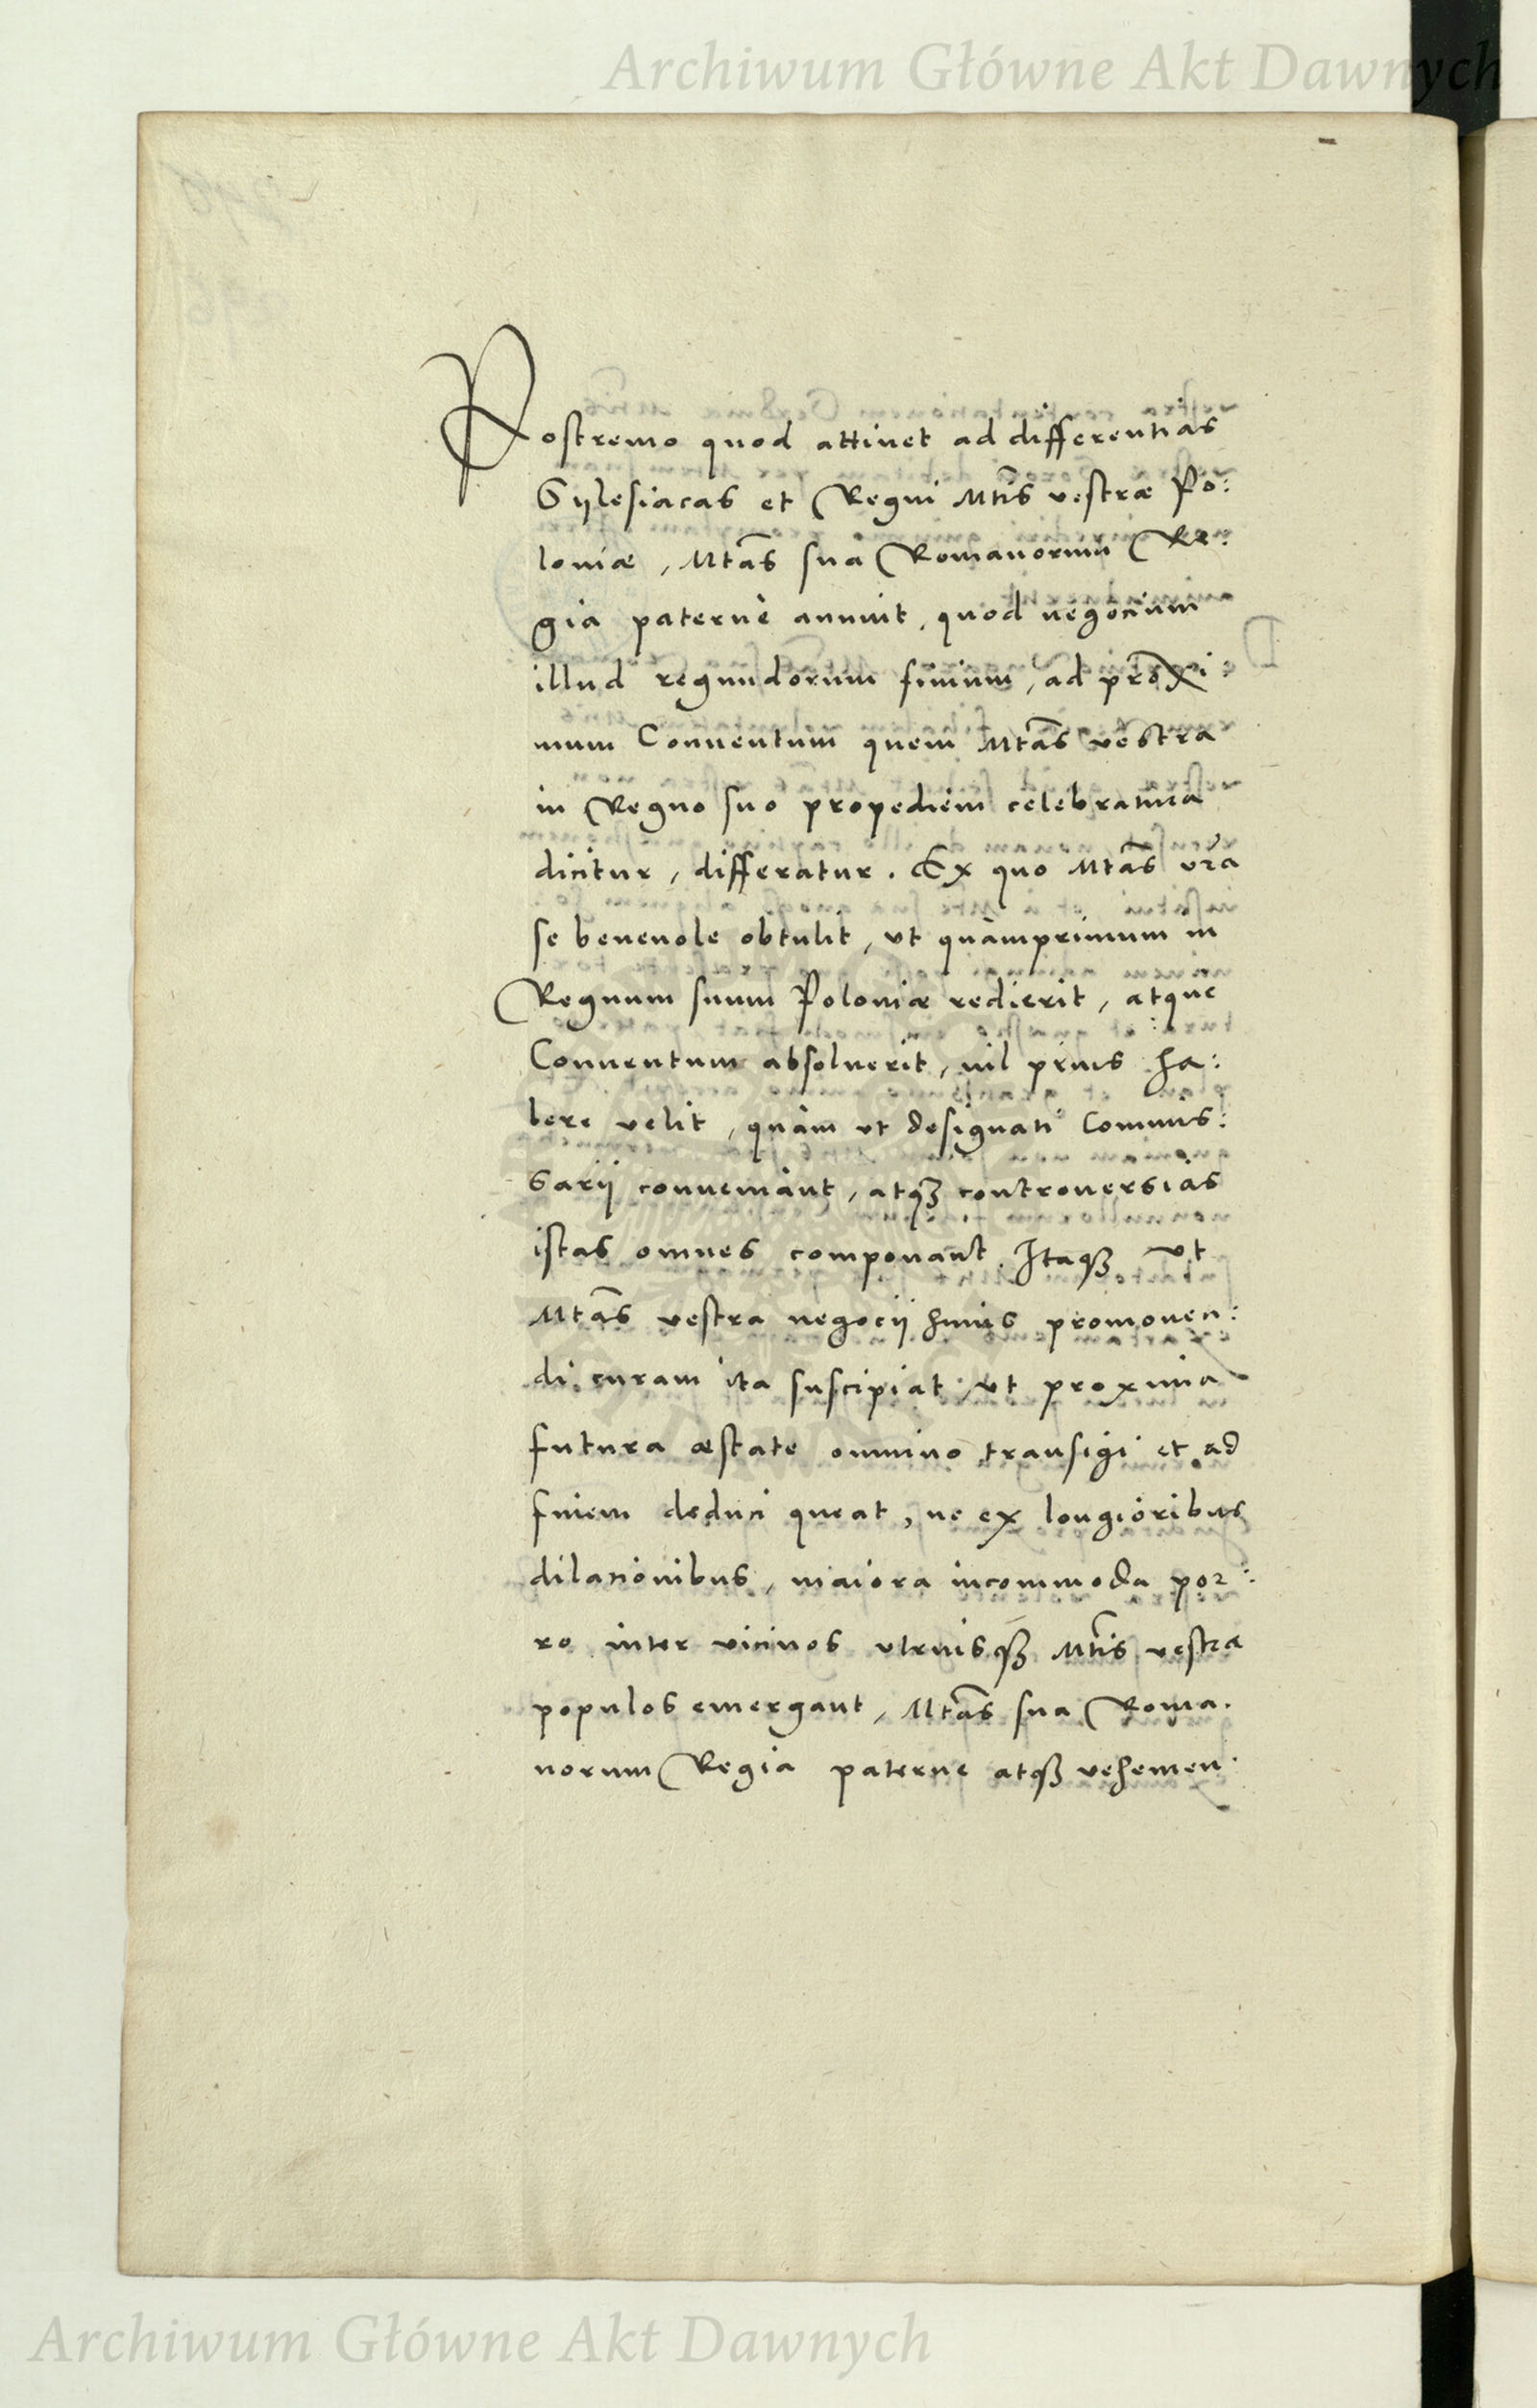 Archiwum Główne Akt Dawnych
Postremo quod attinet ad differentias
Sylesiacas et Regni Mtis vestræ Po:
loniæ, Mtas sua Romanorum Re:
gia paterne annuit, quod negocium
illud regundorum finium, ad proxi:
mum Conuentum quem Mtas vestra
in Regno suo propediem celebratura
dicitur, differatur. Ex quo Mtas vra
se beneuole obtulit, vt quàmprimum in
Regnum suum Poloniæ redierit, atque
Conuentum absoluerit, nil prius ha:
bere velit, quàm vt designati Commis:
sarij conueniant, atqз controuersias
istas omnes componant. Itaqз vt
Mtas vestra negocij huius promouen:
di curam ita suscipiat, vt proxima
futura æstate omnino transigi et ad
finem deduci queat, ne ex longioribus
dilationibus, maiora incommoda por:
ro inter vicinos vtriusqз Mtis vestra
populos emergant, Mtas sua Roma:
norum Regia paterne atqз vehemen:
Archiwum Główne Akt Dawnych